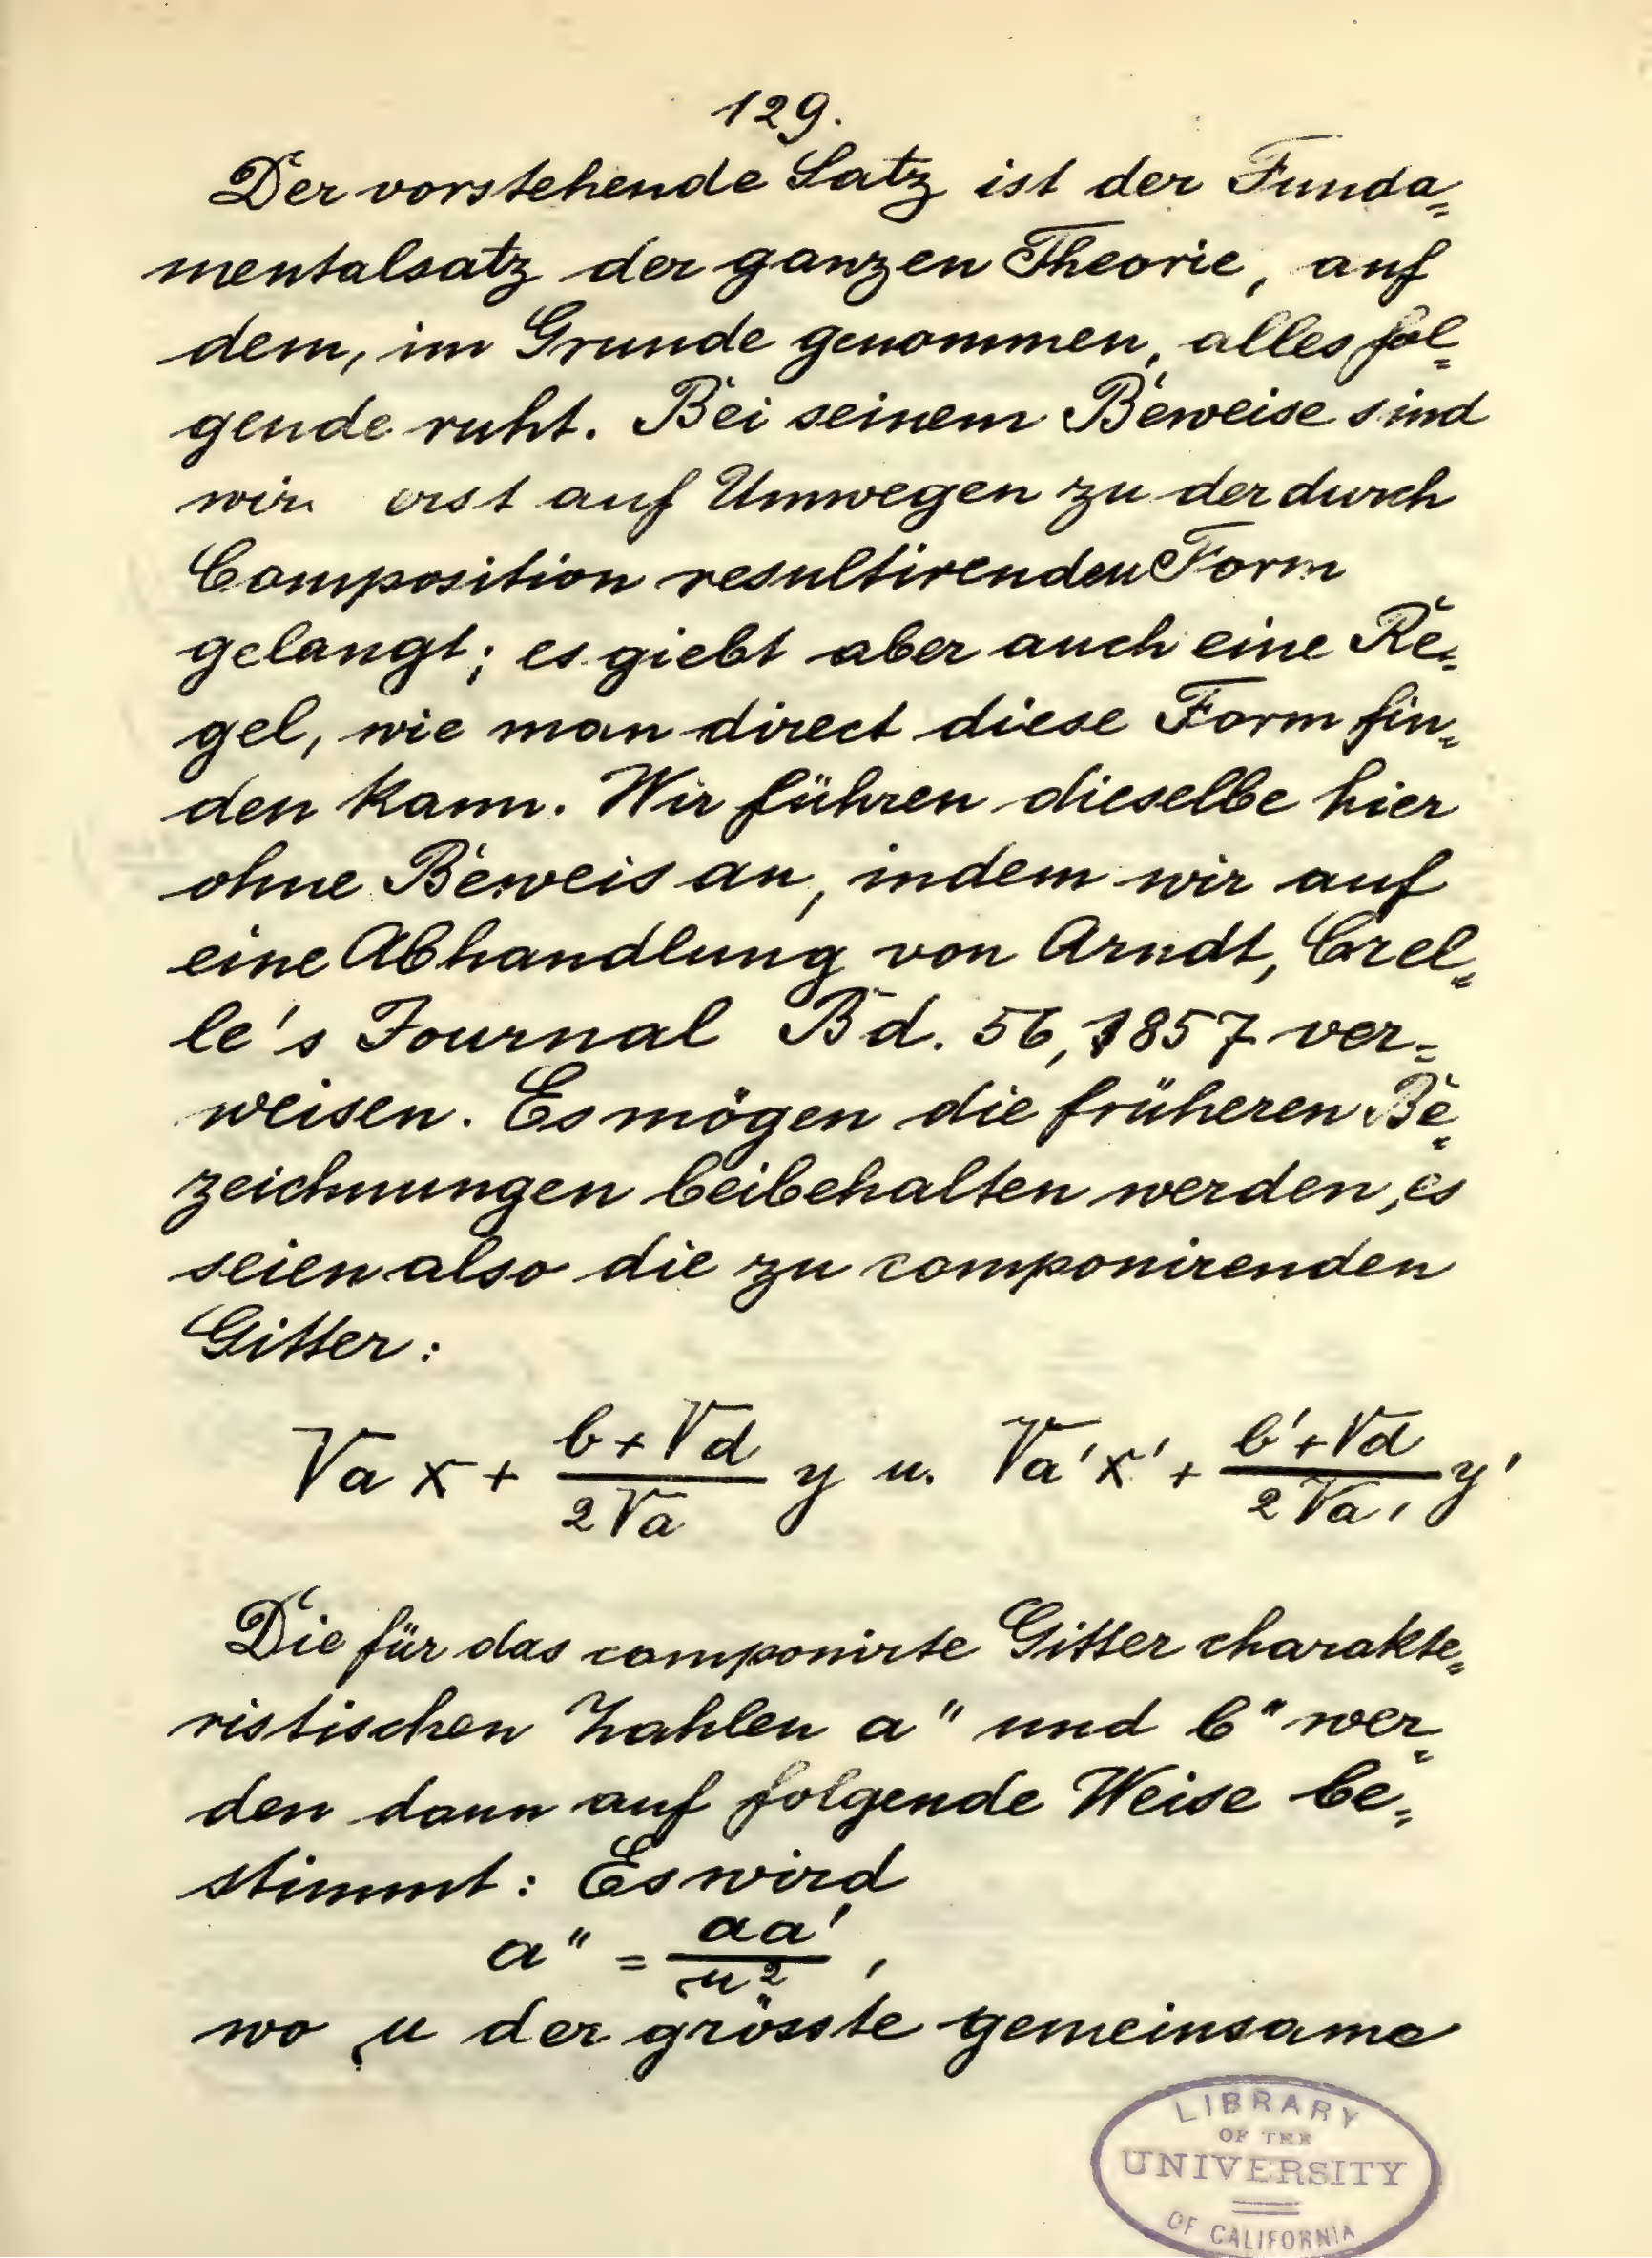 129.
Der vorstehende Satz ist der Funda=
mentalsatz der ganzen Theorie, auf
dem, im Grunde genommen, alles fol=
gende ruht. Bei seinem Beweise sind
wir erst auf Umwegen zu der durch
Composition resultirenden Form
gelangt; es giebt aber auch eine Re=
gel, wie man direct diese Form fin=
den kann. Wir führen dieselbe hier
ohne Beweis an, indem wir auf
eine Abhandlung von Arndt, Crel=
le's Journal Bd. 56, 1857 ver=
weisen. Es mögen die früheren Be=
zeichnungen beibehalten werden, es
seien also die zu componirenden
Gitter:
√a x + (b+√d)/(2√a) y u. √a' x' + (b'+√d)/(2√a') y'
Die für das componirte Gitter charakte=
ristischen Zahlen a" und b" wer=
den dann auf folgende Weise be=
stimmt: Es wird
a" = aa'/μ²,
wo μ der grösste gemeinsame
LIBRARY
OF THE
UNIVERSITY
OF CALIFORNIA